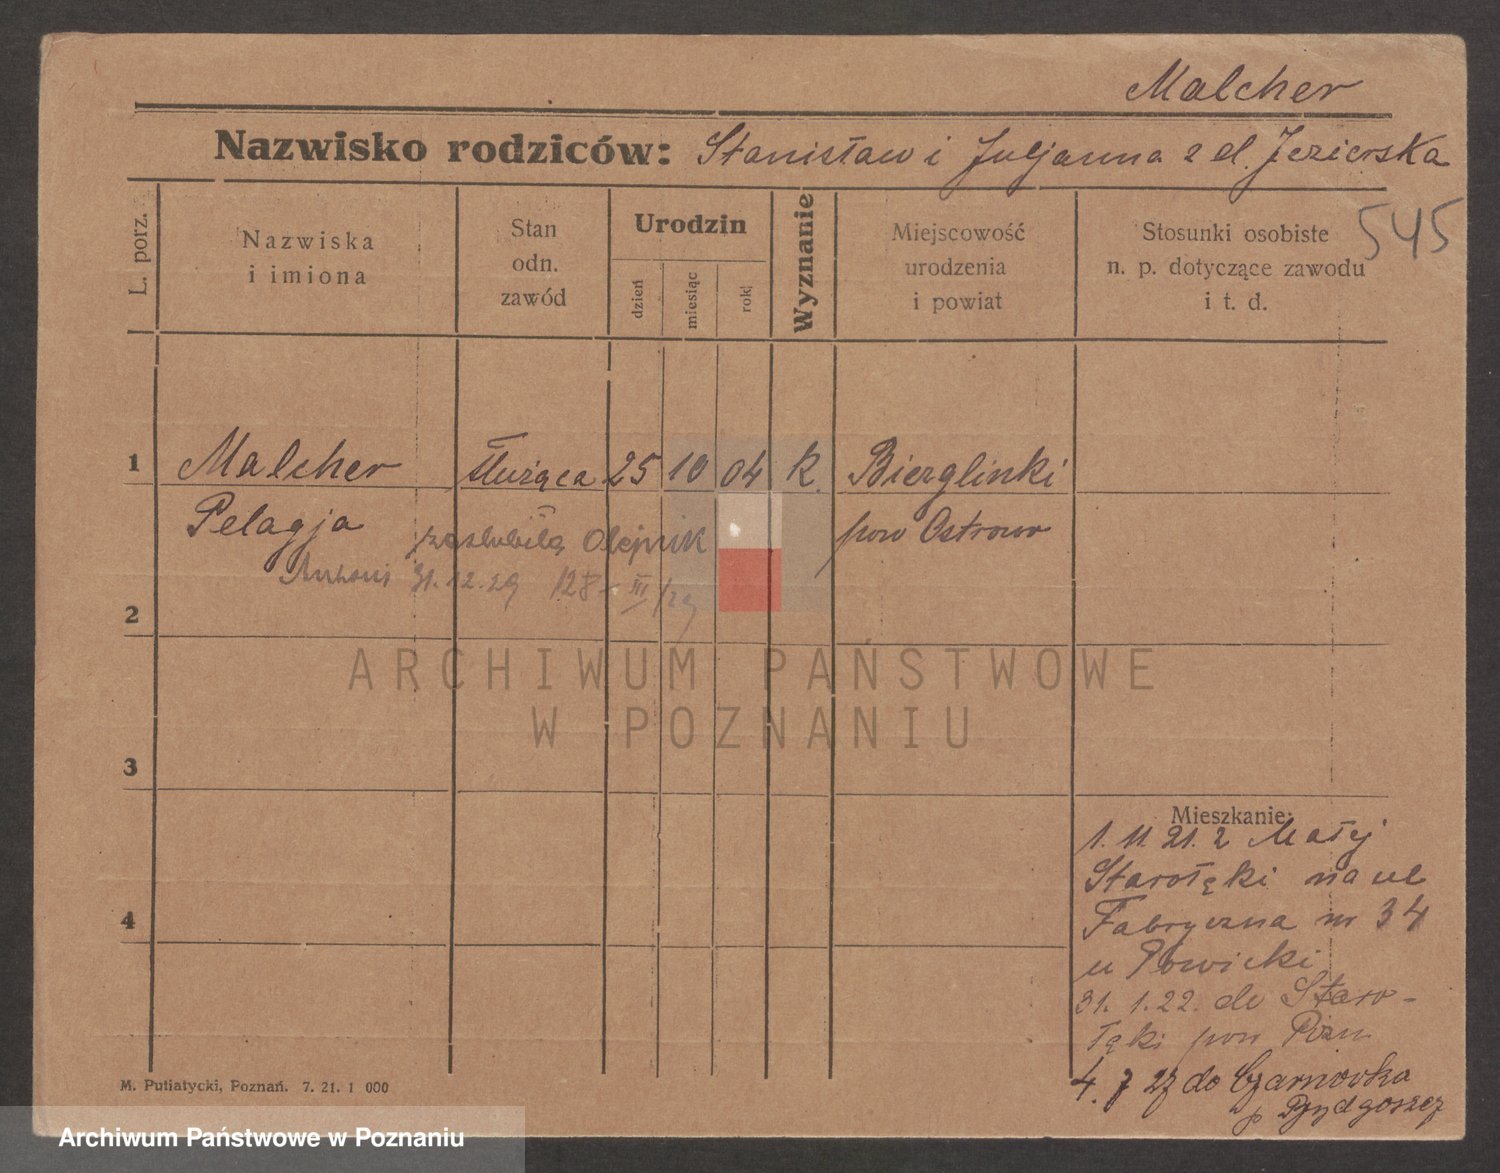 Malcher
Nazwisko rodziców: Stanisław i Juljanna z d. Jezierska
L. porz.
Nazwiska
i imiona
Stan
odn.
zawód
Urodzin
dzień
miesiąc
rok
Wyznanie
Miejscowość
urodzenia
i powiat
Stosunki osobiste
n. p. dotyczące zawodu
i t. d.
545
1 Malcher służąca 25 10 04 k. Bierglinki
Pelagja pow Ostrowo
zaślubiła Olejnik
Antoni 31.12.29 128 - III/29
2
ARCHIWUM PAŃSTWOWE
W POZNANIU
3
Mieszkanie:
1. 11 21. z Małej
Starołęki na ul
4 Fabryczna nr 34
u Nowicki
31. 1. 22. do Staro-
łęki pow Pozn
4. 7 27 do Czarnovka
p Bydgoszcz
M. Putiatycki, Poznań. 7. 21. 1 000
Archiwum Państwowe w Poznaniu